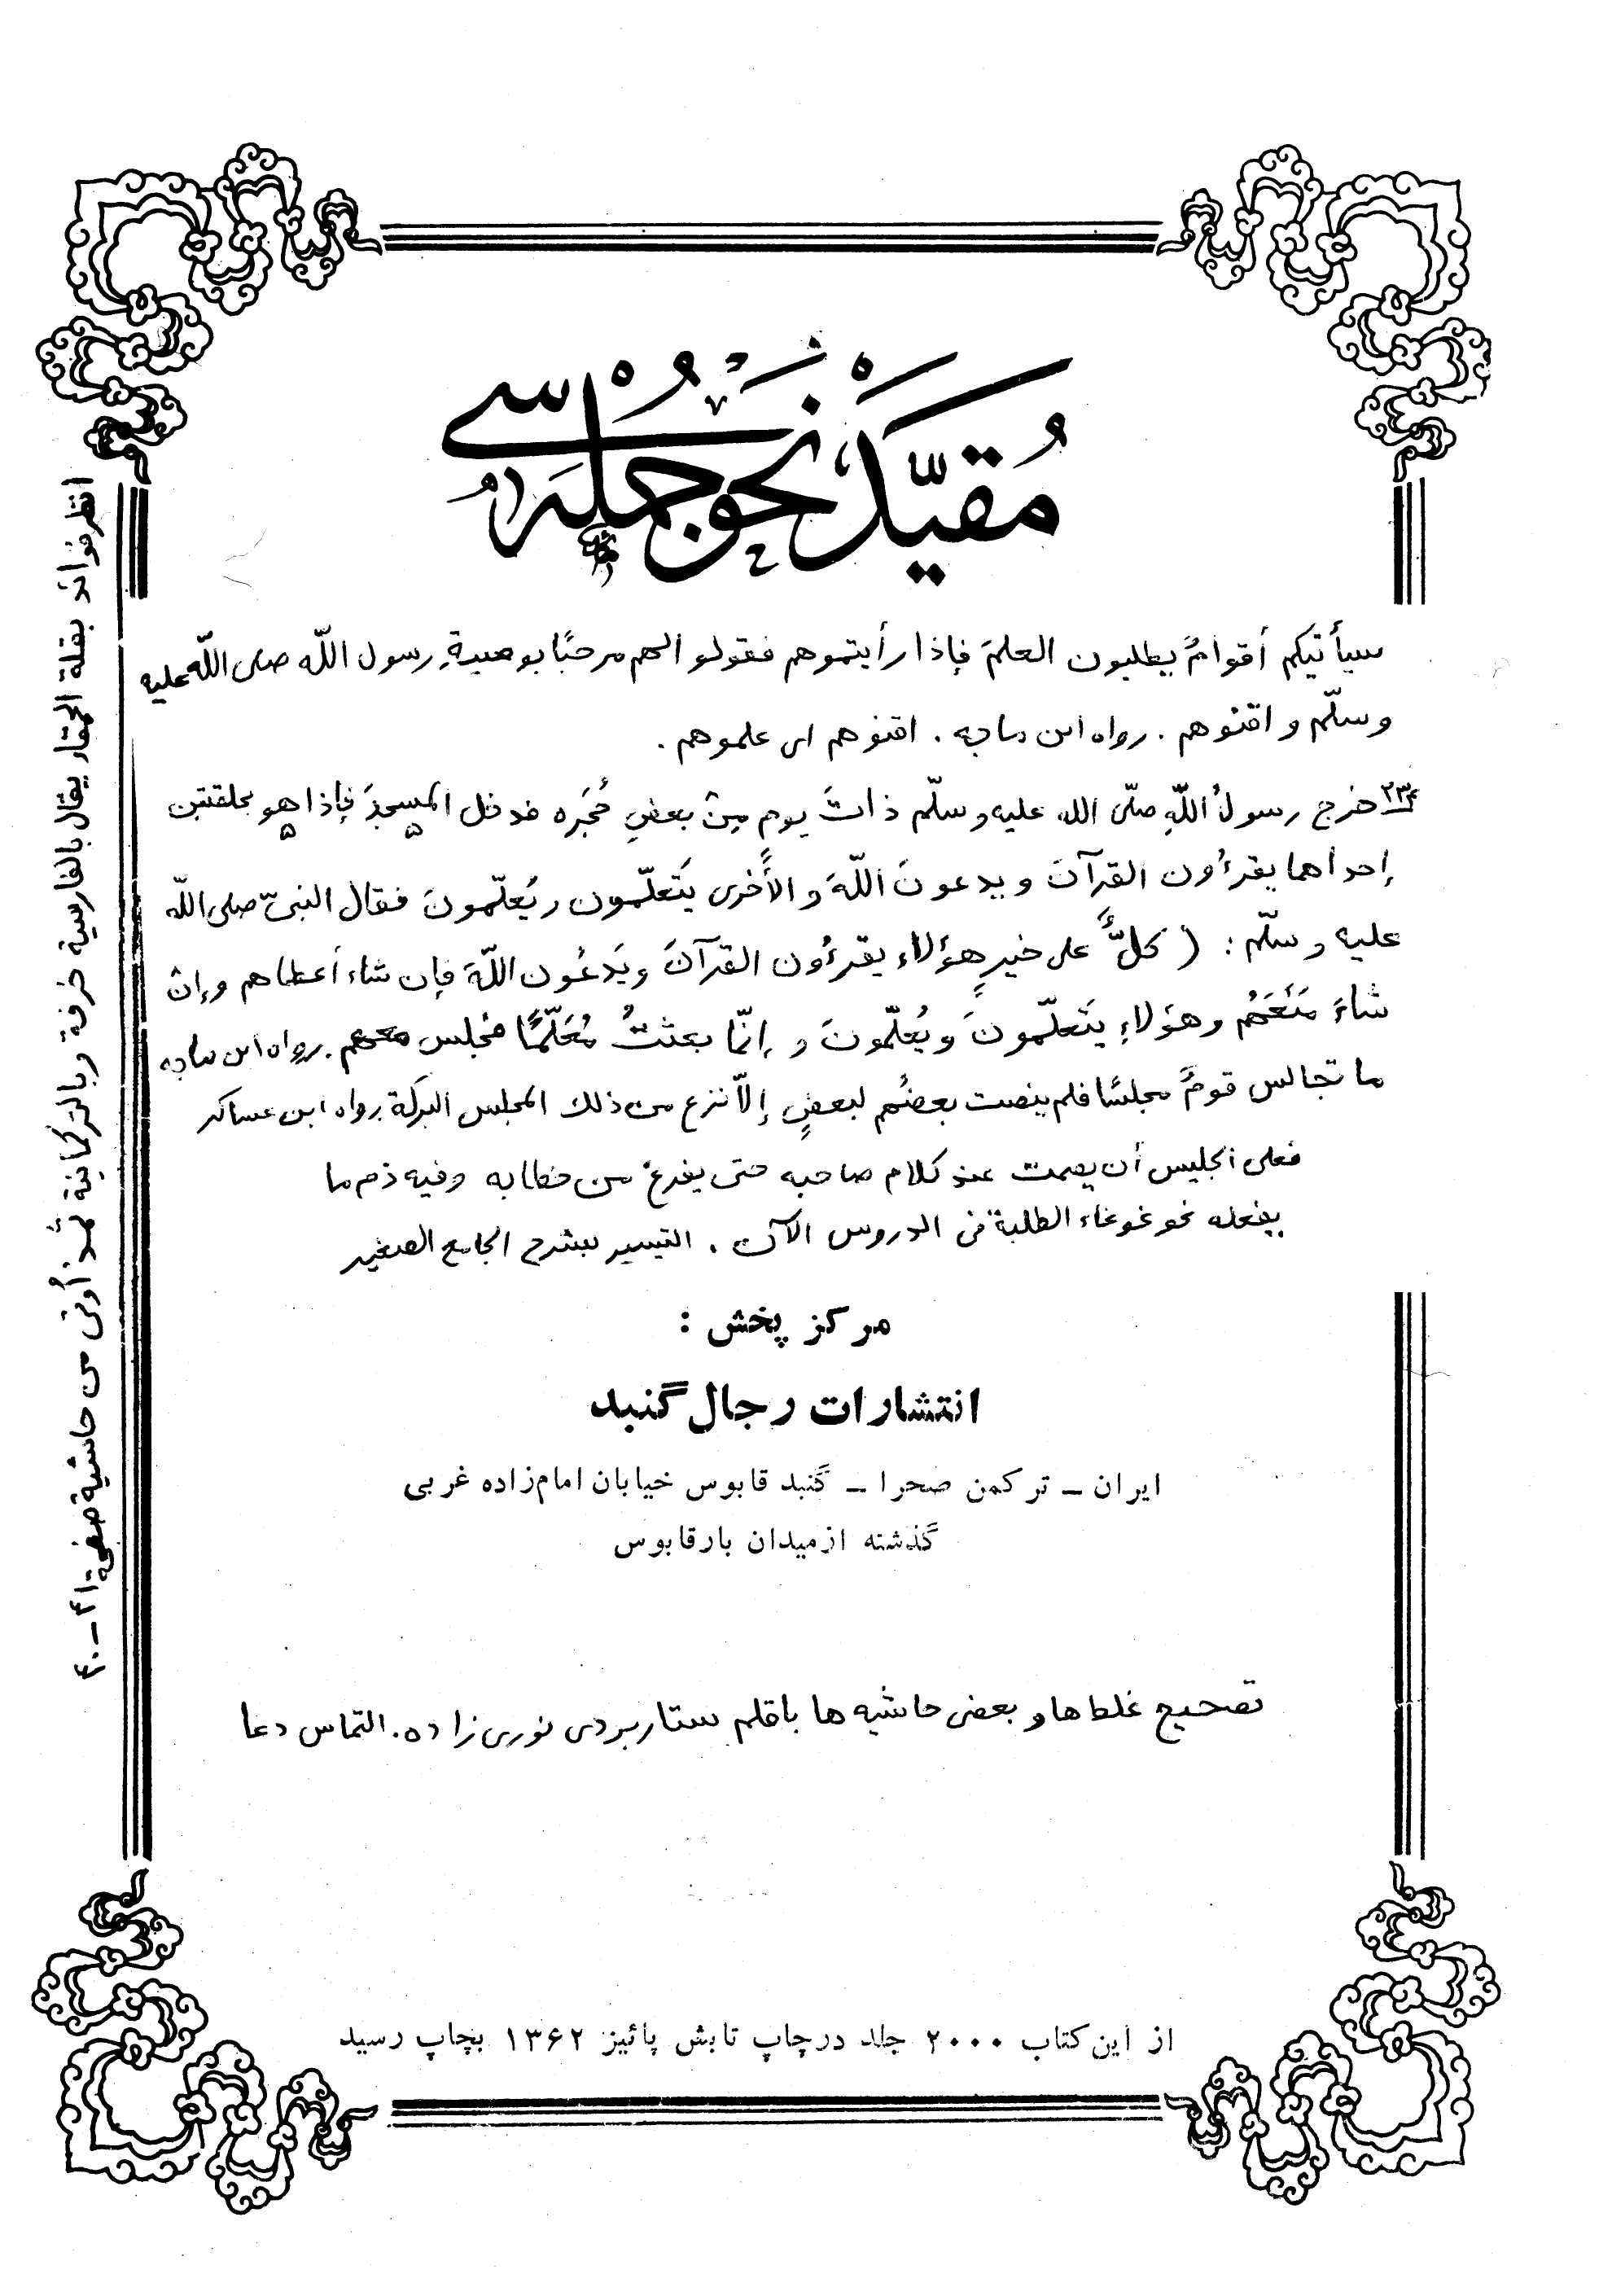 مُقیَّدْ نَحَوْ جُمْلَه‌سی
سيأتيكم أقوامٌ يطلبون العلمَ فإذا رأيتموهم فقولو الهم مرحبًا بوصيةِ رسول اللّه صلى اللّه عليه
وسلّم و اقنوهم . رواه ابن ماجه . اقنوهم اى علموهم .
خرج رسولُ اللّهِ صلّى الله عليه وسلّم ذاتَ يومٍ مِنْ بعضِ حُجَرِه فدخل المسجدَ فإذا هو بحلقتين
إحداهما يقرءُون القرآنَ ويدعونَ اللّهَ والأُخرى يَتعلّمون ويُعلّمونَ فقال النبىّ صلى اللّه
عليه وسلّم : ( كلٌّ على خيرٍ هؤلاء يقرءُون القرآنَ ويَدعُون اللّهَ فإن شاء أعطاهم وإنْ
شاءَ مَنَعَهُم وهؤلاءِ يتعلّمونَ ويُعلّمونَ و إنّما بعثتُ مُعَلّمًا فجلس معهم . رواه ابن ماجه
ما تجالس قومٌ مجلسًا فلم ينصت بعضُهم لبعضٍ إلاّ نزع من ذلك المجلس البركة رواه ابن عساكر
فعلى الجليس أن يصمت عند كلام صاحبه حتى يفرغ من خطابه وفيه ذم ما
يفعله نحو غوغاء الطلبة فى الدروس الآن . التيسير بشرح الجامع الصغير
مرکز پخش :
انتشارات رجال گنبد
ایران ـ ترکمن صحرا ـ گنبد قابوس خیابان امام‌زاده غربی
گذشته از میدان بار قابوس
تصحیح غلط‌ها و بعض حاشیه‌ها با قلم ستار بردی نوری زاده . التماس دعا
از این کتاب ۲۰۰۰ جلد در چاپ تابش پائیز ۱۳۶۲ بچاپ رسید
انظر فوائد بقلة الحمقاء يقال بالفارسية خرفة وبالتركمانية من حاشية صفحة ٤١ ـ ٤٠